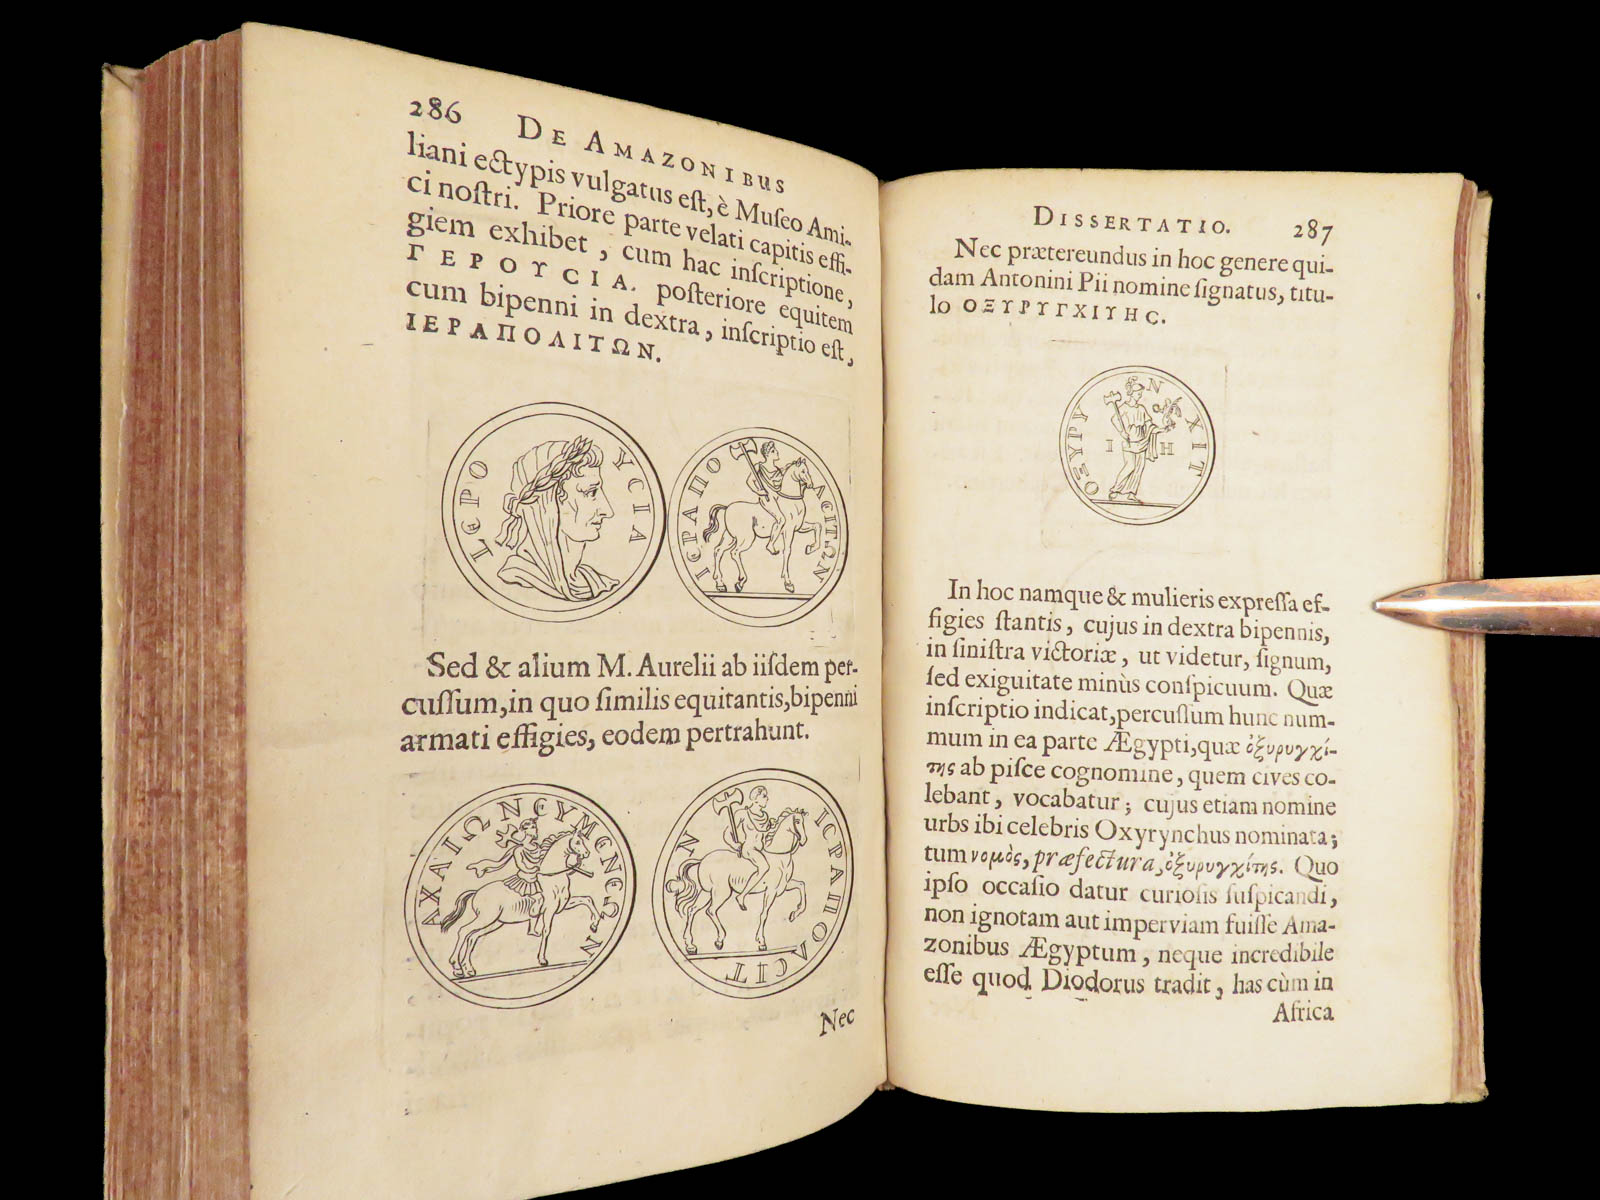 286 DE AMAZONIBUS
liani ectypis vulgatus est, è Muſeo Ami-
ci noſtri. Priore parte velati capitis effi-
giem exhibet, cum hac inſcriptione,
ΓΕΡΟΥCΙΑ. poſteriore equitem
cum bipenni in dextra, inſcriptio eſt,
ΙΕΡΑΠΟΛΙΤΩΝ.
ΙΕΡΟ ΥCΙΑ
ΙΕΡΑΠΟ ΛΕΙΤΩΝ
Sed & alium M. Aurelii ab iiſdem per-
cuſſum, in quo ſimilis equitantis, bipenni
armati effigies, eodem pertrahunt.
ΑΧΑΙΩΝ ΕΥΜΕΝΕΩΝ
ΙΕΡΑΠΟΛCΙΤ Ν
Nec
DISSERTATIO. 287
Nec prætereundus in hoc genere qui-
dam Antonini Pii nomine ſignatus, titu-
lo ΟΞΥΡΥΓΧΙΥΗC.
ΟΞΥΡΥ Ν ΧΙΤ
Ι Η
In hoc namque & mulieris expreſſa ef-
figies ſtantis, cujus in dextra bipennis,
in ſiniſtra victoriæ, ut videtur, ſignum,
ſed exiguitate minùs conſpicuum. Quæ
inſcriptio indicat, percuſſum hunc num-
mum in ea parte Ægypti, quæ ὀξυρυγχί-
της ab piſce cognomine, quem cives co-
lebant, vocabatur; cujus etiam nomine
urbs ibi celebris Oxyrynchus nominata;
tum νομὸς, præfectura, ὀξυρυγχίτης. Quo
ipſo occaſio datur curioſis ſuſpicandi,
non ignotam aut imperviam fuiſſe Ama-
zonibus Ægyptum, neque incredibile
eſſe quod Diodorus tradit, has cùm in
Africa